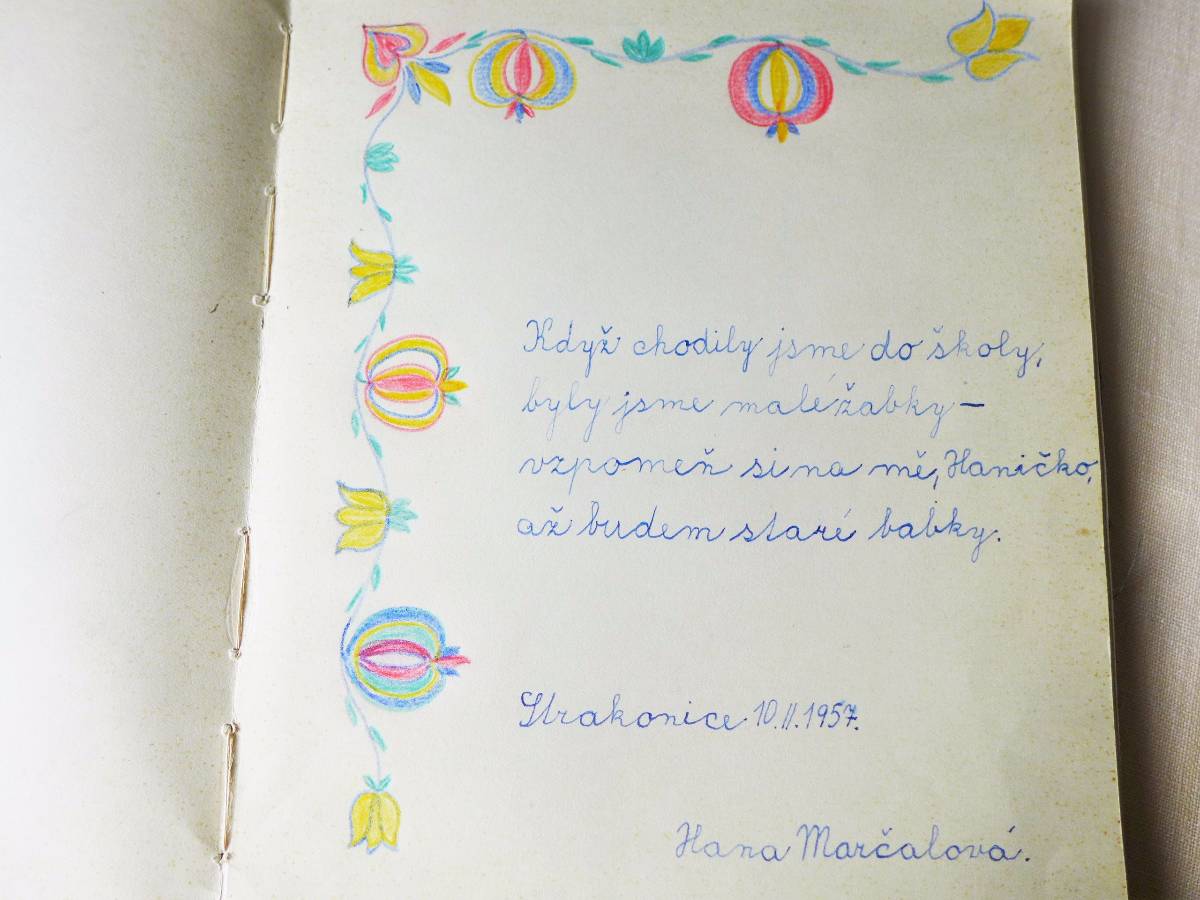 Když chodily jsme do školy,
byly jsme malé žabky –
vzpomeň si na mě, Haničko,
až budem staré babky.
Strakonice 10.II.1957.
Hana Marčalová.